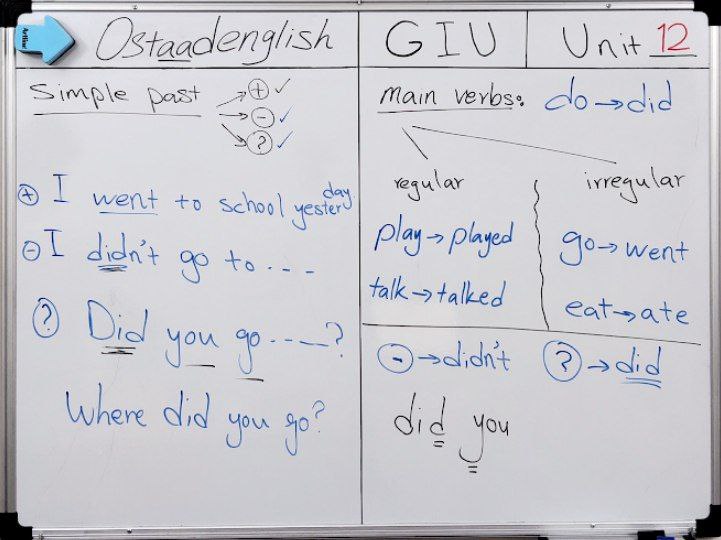 Ostaadenglish
GIU
Unit 12
Simple past
+ ✓
- ✓
? ✓
+ I went to school yesterday
- I didn't go to . - - -
? Did you go . - - —?
Where did you go?
main verbs: do → did
regular
irregular
play → played
talk → talked
go → went
eat → ate
- → didn't
? → did
did you